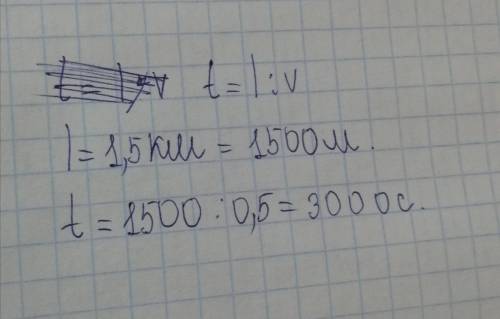 t = l : v
l = 1,5 км = 1500 м.
t = 1500 : 0,5 = 3000 с.